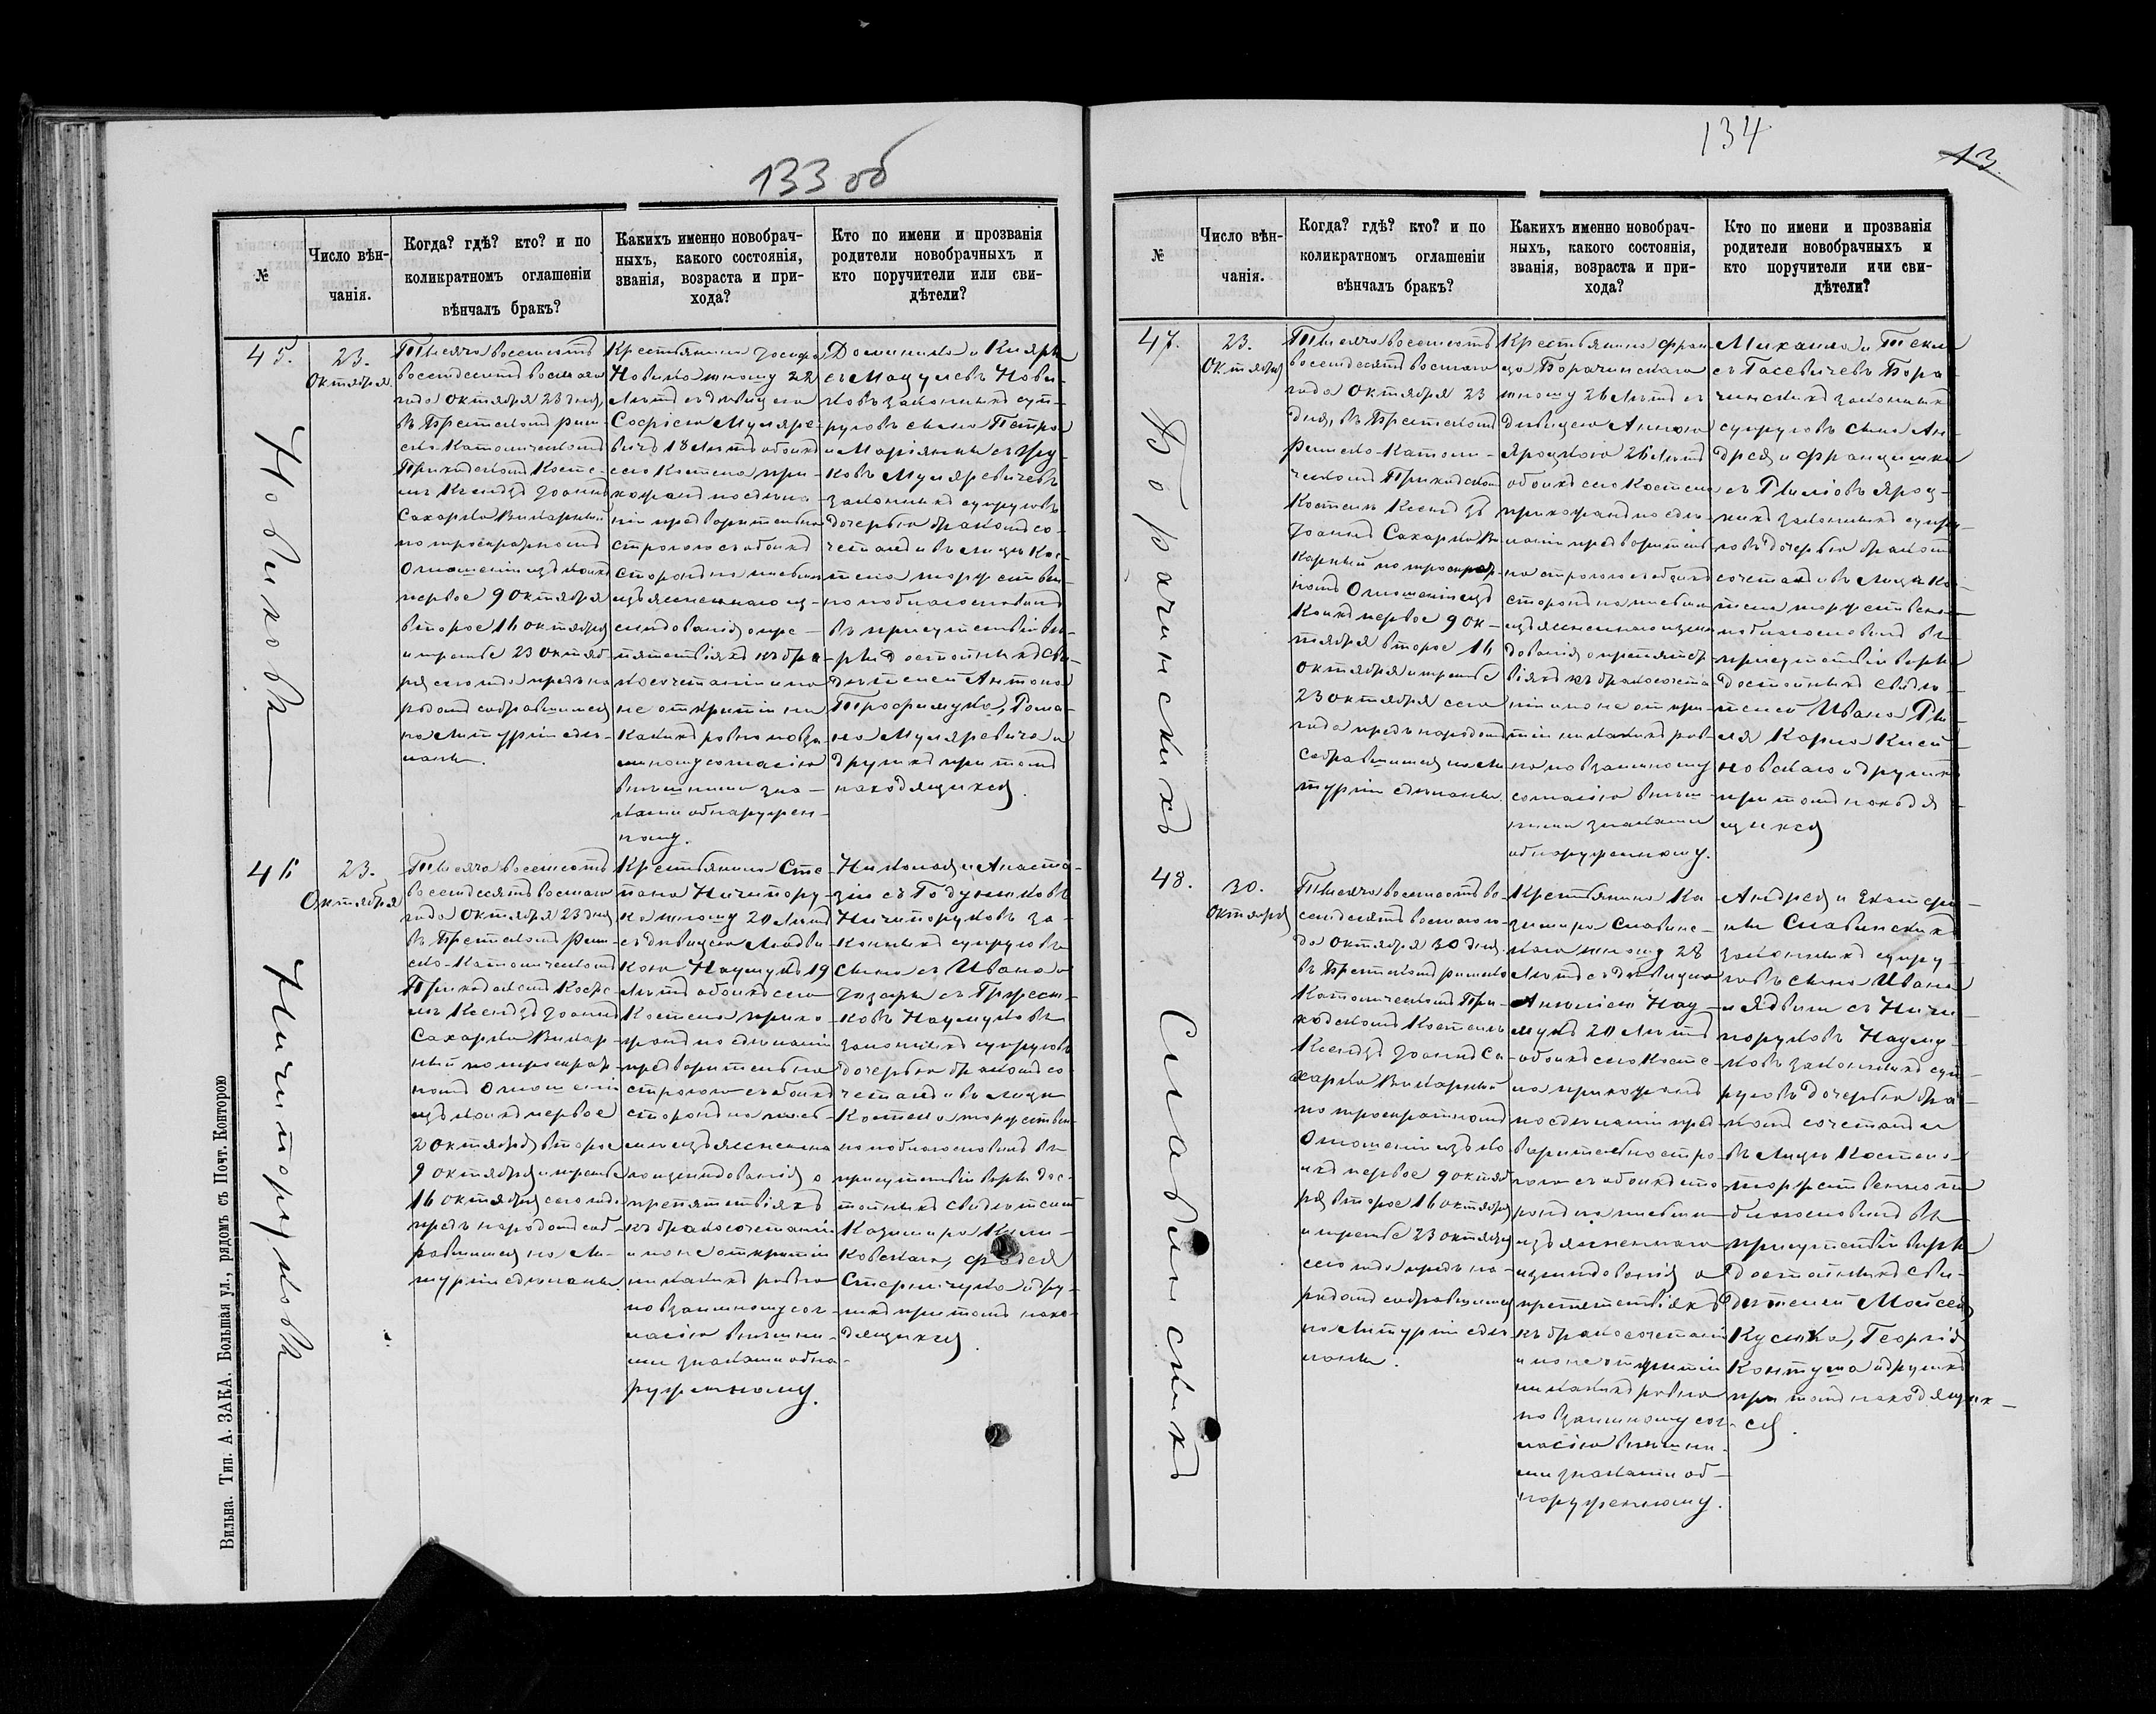 133 об
№
Число вѣн-
чанія.
Когда? гдѣ? кто? и по
коликратномъ оглашеніи
вѣнчалъ бракъ?
Какихъ именно новобрач-
ныхъ, какого состоянія,
званія, возраста и при-
хода?
Кто по имени и прозванія
родители новобрачныхъ и
кто поручители или сви-
дѣтели?
45.
23.
Октября
Новиковъ
Тысяча восемьсотъ
восемдесятъ восьмаго
года Октября 23 дня,
въ Брестскомъ Рим-
ско-Католическомъ
Приходскомъ Косте-
лѣ Ксендзъ Іоаннъ
Сахарко Викарный
по троекратномъ
Оглашеніи изъ коихъ
первое 9 Октября
второе 16 Октября
и третье 23 Октяб-
ря сего года предъ на
родомъ собравшимся
на Литургіи сдѣ-
ланы.
Крестьянина Іосифа
Новика юношу 22
лѣтъ съ дѣвицею
Софіею Муляре-
вичъ 18 лѣтъ обоихъ
сего Костела при-
хожанъ по сдѣла-
ніи предварительно
строгого съ обоихъ
сторонъ на письмѣ
изъясненнаго из-
слѣдованія о пре-
пятствіяхъ къ бра-
косочетанію и по
не открытіи ни
какихъ равно по вза
имному согласію
внѣшними зна-
ками обнаружен-
ному.
Доминика и Кияры
съ Мацулевъ Нови-
ковъ законныхъ суп-
руговъ сына Петра
и Маріянны съ Жу-
ковъ Муляревичевъ
законныхъ супруговъ
дочерью бракомъ со-
четалъ и въ лицѣ Кос-
тела торжествен-
но поблагословилъ
въ присутствіи вѣ-
ры достойныхъ сви-
дѣтелей Антона
Трофимука, Рома-
на Муляревича и
другихъ при томъ
находящихся.
46
23.
Октября
Ничипоруковъ
Тысяча восемьсотъ
восемдесятъ восьмаго
года Октября 23 дня
въ Брестскомъ Рим-
ско-Католическомъ
Приходскомъ Косте-
лѣ Ксендзъ Іоаннъ
Сахарко Викар-
ный по троекрат-
номъ Оглашеніи
изъ коихъ первое
2 Октября второе
9 Октября и третье
16 Октября сего года
предъ народомъ соб-
равшимся на Ли-
тургіи сдѣланы.
Крестьянина Сте
пана Ничипору-
ка юношу 20 лѣтъ
съ дѣвицею Людви
кою Наумукъ 19
лѣтъ обоихъ сего
Костела прихо
жанъ по сдѣланіи
предварительно
строгого съ обоихъ
сторонъ на пись-
мѣ изъясненна
го изслѣдованія о
препятствіяхъ
къ бракосочетанію
и по не открытіи
ни какихъ равно
по взаимному сог-
ласію внѣшни-
ми знаками обна-
руженному.
Николая и Анаста-
зіи съ Годуниковъ
Ничипоруковъ за-
конныхъ супруговъ
сына съ Ивана и
Іозефы съ
Наумуковъ
законныхъ супруговъ
дочерью бракомъ со-
четалъ и въ лицѣ
Костела торжествен-
но поблагословилъ въ
присутствіи вѣры дос-
тойныхъ свидѣтелей
Казимира Клим-
ковскаго, Фадея
Стернічука и дру-
гихъ при томъ нахо-
дящихся.
Вильна. Тип. А. ЗАКА. Большая ул., рядомъ съ Почт. Конторою
134
13
№
Число вѣн-
чанія.
Когда? гдѣ? кто? и по
коликратномъ оглашеніи
вѣнчалъ бракъ?
Какихъ именно новобрач-
ныхъ, какого состоянія,
званія, возраста и при-
хода?
Кто по имени и прозванія
родители новобрачныхъ и
кто поручители или сви-
дѣтели?
47.
23.
Октября
Борачинскихъ
Тысяча восемьсотъ
восемдесятъ восьмаго
года Октября 23
дня, въ Брестскомъ
Римско-Католи-
ческомъ Приходскомъ
Костелѣ Ксендзъ
Іоаннъ Сахарко Ви
карный по троекрат-
номъ Оглашеніи изъ
Коихъ первое 9 Ок-
тября второе 16
Октября и третье
23 Октября сего
года предъ народомъ
Собравшимся на Ли
тургіи сдѣланы.
Крестьянина Фран
ца Борачинскаго
юношу 26 лѣтъ съ
дѣвицею Анною
Яроцкою 26 лѣтъ
обоихъ сего Костела
прихожанъ по сдѣ-
ланіи предваритель
но строгого съ обоихъ
сторонъ на письмѣ
изъясненнаго изслѣ
дованія о препятст
віяхъ къ бракосочета
нію и по не откры-
тіи ни какихъ рав-
но по взаимному
согласію внѣш-
ними знаками
обнаруженному.
Михаила и Теклы
съ Гасевичевъ Бора-
чинскихъ законныхъ
супруговъ сына Ан-
дрея и Францишки
съ Яроц-
кихъ законныхъ супру-
говъ дочерью бракомъ
сочеталъ и въ лицѣ Ко-
стела торжественно
поблагословилъ въ
присутствіи вѣры
достойныхъ свидѣ-
телей Ивана
Карла
и другихъ
при томъ находя
щихся
48.
30.
Октября
Славинскихъ
Тысяча восемьсотъ во
семдесятъ восьмаго го-
да Октября 30 дня
въ Брестскомъ Римско
Католическомъ При-
ходскомъ Костелѣ
Ксендзъ Іоаннъ Са-
харко Викарный
по троекратномъ
Оглашеніи изъ ко
ихъ первое 9 Октяб
ря второе 16 Октября
и третье 23 Октября
сего года предъ на-
родомъ собравшимся
на Литургіи сдѣ-
ланы.
Крестьянина Ка
зимира Славинс-
каго юношу 28
лѣтъ съ дѣвицею
Анеліею Нау-
мукъ 20 лѣтъ
обоихъ сего Косте-
ла прихожанъ
по сдѣланіи пред-
варительно стро-
гого съ обоихъ сто
ронъ на письмѣ
изъясненнаго
изслѣдованія о
препятствіяхъ
къ бракосочетанію
и по не открытіи
ни какихъ равно
по взаимному сог-
ласію внѣшни-
ми знаками об-
наруженному.
Андрея и Екатери-
ны Славинскихъ
законныхъ супру-
говъ сына Ивана
и Ядвиги съ Ничи-
поруковъ Науму-
ковъ законныхъ суп-
руговъ дочерью бра-
комъ сочеталъ и
въ лицѣ Костела
торжественно по
благословилъ въ
присутствіи вѣры
достойныхъ сви-
дѣтелей Мойсея
Кусика, Георгія
Контула и другихъ
при томъ находящих-
ся.